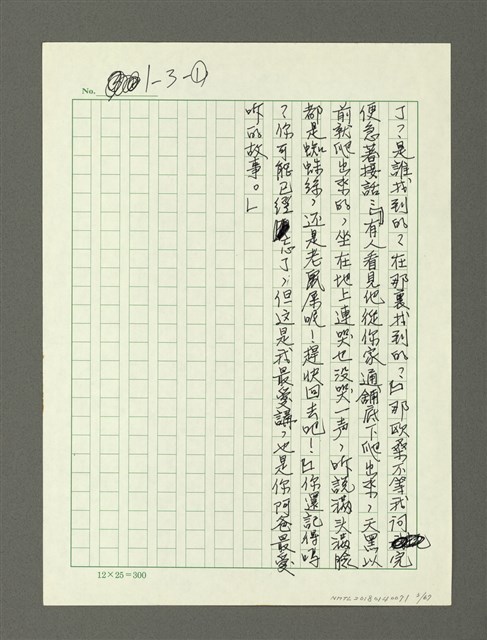 No. 1-3-①
了？是誰找到的？在那裏找到的？」那歐桑不等我问完
便急著接話：「有人看見他從你家通舖底下爬出來，天黑以
前就爬出來的，坐在地上連哭也没哭一声，听說滿头滿臉
都是蜘蛛絲，还是老鼠屎呢！趕快回去吧！」你還記得嗎
？你可能已經忘了，但这是我最愛講，也是你阿爸最愛
听的故事。」
12×25=300